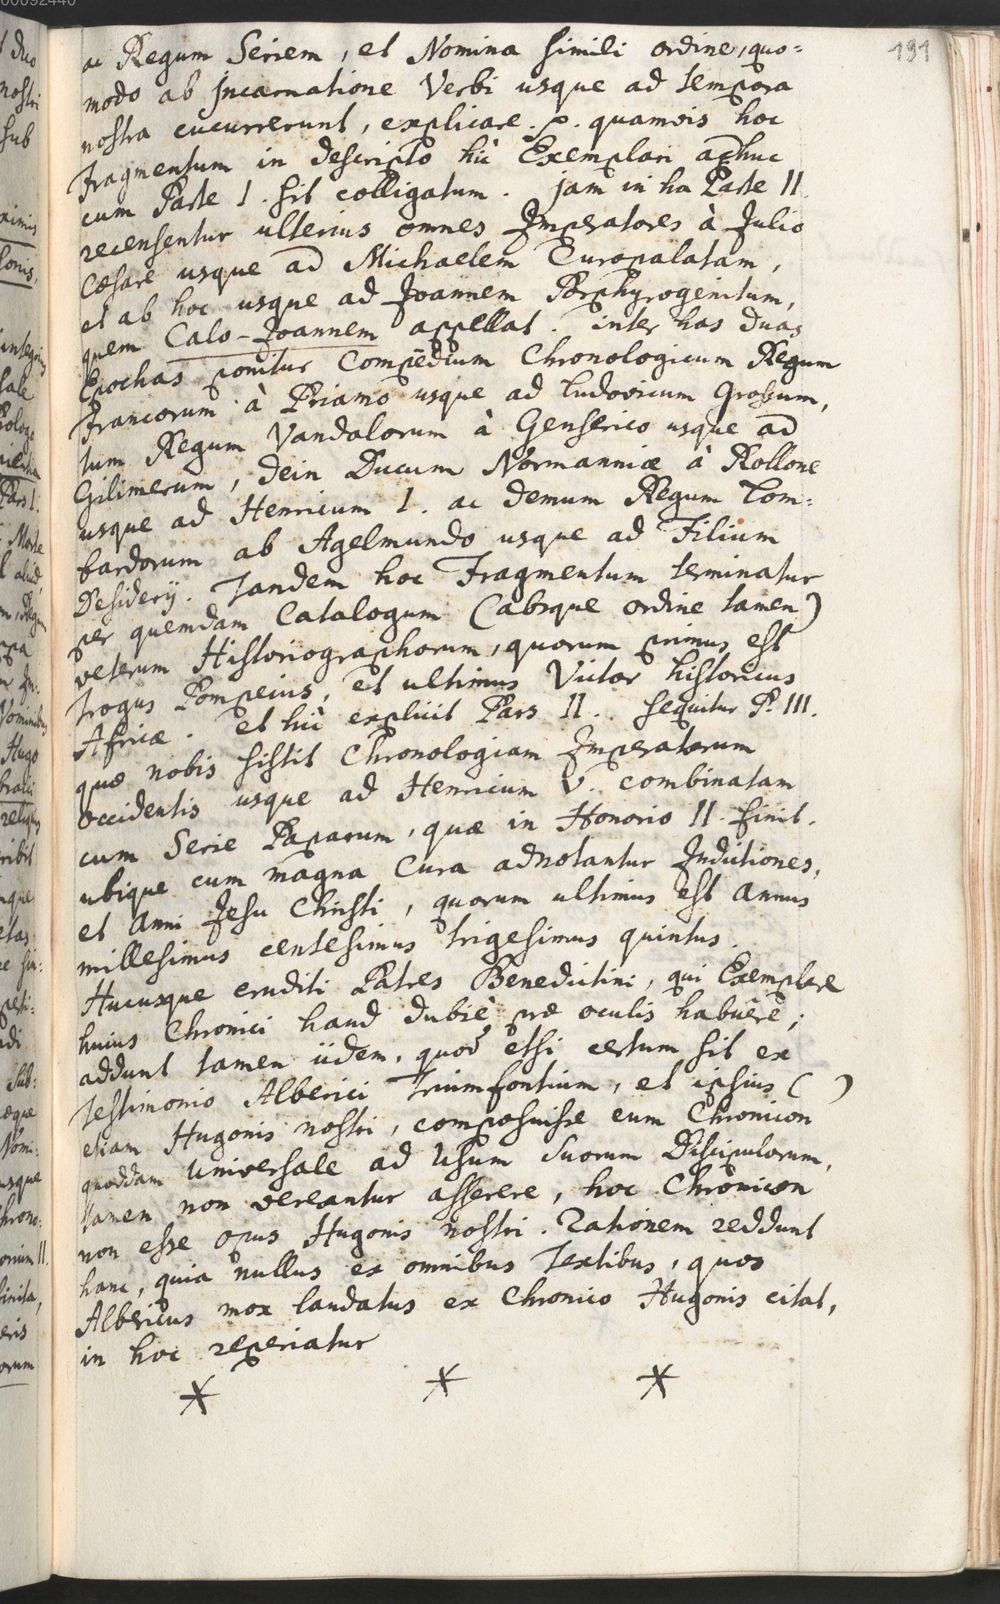 00092440
191
ac Regum Seriem, et Nomina simili ordine, quo=
modo ab jncarnatione Verbi usque ad tempora
nostra cucurrerunt, explicare. p. quamvis hoc
Fragmentum in descripto hic Exemplari adhuc
cum Parte I. sit colligatum. jam in hac Parte II.
recensentur ulterius omnes Jmperatores à Julio
Cæsare usque ad Michaelem Curopalatam,
et ab hoc usque ad Joannem Porphyrogenitum,
quem Calo-Joannem appellat. inter has duas
Epochas ponitur Compēdium Chronologicum Regum
Francorum à Priamo usque ad Ludovicum Grossum,
tum Regum Vandalorum à Genserico usque ad
Gilimerum, dein Ducum Normanniæ à Rollone
usque ad Henricum I. ac demum Regum Lom=
bardorum ab Agelmundo usque ad Filium
Desiderij. Tandem hoc Fragmentum terminatur
per quemdam Catalogum (absque ordine tamen)
veterum Historiographorum, quorum primus est
Trogus Pompeius, et ultimus Victor historicus
Africæ. et hic explicit Pars II. sequitur P. III.
quæ nobis sistit Chronologiam Jmperatorum
occidentis usque ad Henricum V. combinatam
cum Serie Paparum, quæ in Honorio II. finit.
ubique cum magna Cura adnotantur Jndictiones,
et Anni Jesu Christi, quorum ultimus est Annus
millesimus centesimus trigesimus quintus.
Hucusque eruditi Patres Benedictini, qui Exemplare
huius Chronici haud dubiè præ oculis habuêre;
addunt tamen iidem, quod etsi certum sit ex
Testimonio Alberici Triumfontium, et ipsius ( )
etiam Hugonis nostri, composuisse eum Chronicon
quoddam Universale ad Usum Suorum Discipulorum,
tamen non vereantur asserere, hoc Chronicon
non esse opus Hugonis nostri. Rationem reddunt
hanc, quia nullus ex omnibus Textibus, quos
Albericus mox laudatus ex Chronico Hugonis citat,
in hoc reperiatur